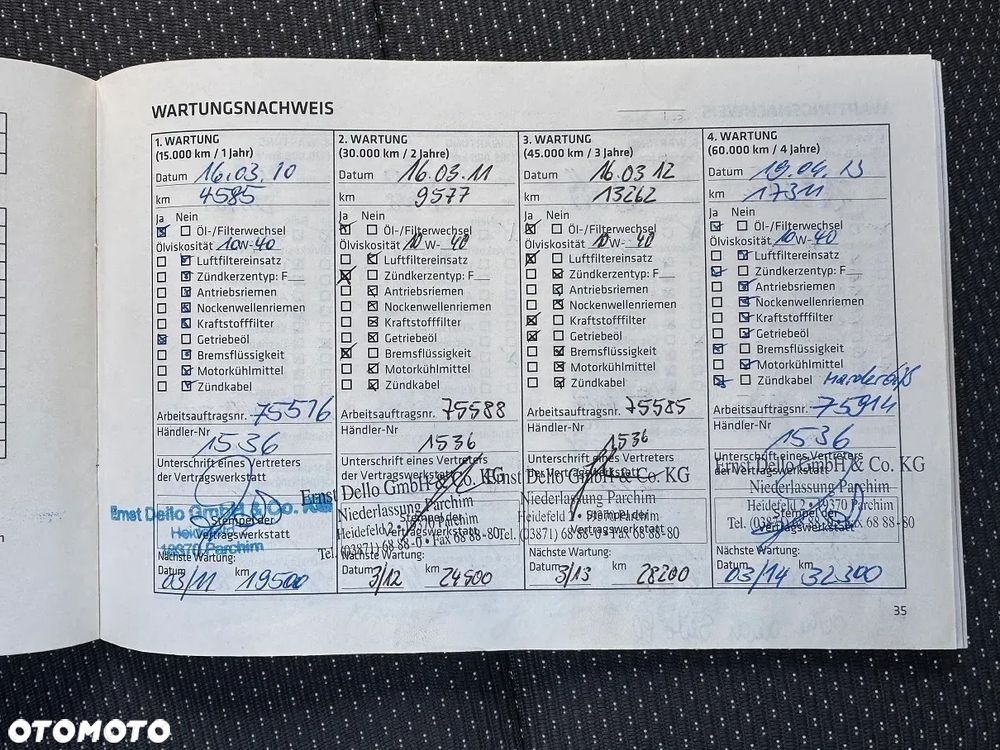 WARTUNGSNACHWEIS
1. WARTUNG
(15.000 km / 1 Jahr)
Datum 16.03.10
km 4585
Ja Nein
Öl-/Filterwechsel
Ölviskosität 10W-40
Luftfiltereinsatz
Zündkerzentyp: F
Antriebsriemen
Nockenwellenriemen
Kraftstofffilter
Getriebeöl
Bremsflüssigkeit
Motorkühlmittel
Zündkabel
Arbeitsauftragsnr. 75516
Händler-Nr
1536
Unterschrift eines Vertreters
der Vertragswerkstatt
Ernst Dello GmbH & Co. KG
Stempel der
Vertragswerkstatt
19370 Parchim
Nächste Wartung:
Datum 03/11 km 19500
2. WARTUNG
(30.000 km / 2 Jahre)
Datum 16.03.11
km 9577
Ja Nein
Öl-/Filterwechsel
Ölviskosität 10W-40
Luftfiltereinsatz
Zündkerzentyp: F
Antriebsriemen
Nockenwellenriemen
Kraftstofffilter
Getriebeöl
Bremsflüssigkeit
Motorkühlmittel
Zündkabel
Arbeitsauftragsnr. 75588
Händler-Nr
1536
Unterschrift eines Vertreters
der Vertragswerkstatt
Ernst Dello GmbH & Co. KG
Niederlassung Parchim
Heidefeld 2 • 19370 Parchim
Stempel der
Vertragswerkstatt
Tel. (03871) 68 88-0 • Fax 68 88-80
Nächste Wartung:
Datum 3/12 km 24500
3. WARTUNG
(45.000 km / 3 Jahre)
Datum 16.03 12
km 13262
Ja Nein
Öl-/Filterwechsel
Ölviskosität 10W-40
Luftfiltereinsatz
Zündkerzentyp: F
Antriebsriemen
Nockenwellenriemen
Kraftstofffilter
Getriebeöl
Bremsflüssigkeit
Motorkühlmittel
Zündkabel
Arbeitsauftragsnr. 75585
Händler-Nr
1536
Unterschrift eines Vertreters
der Vertragswerkstatt
Ernst Dello GmbH & Co. KG
Niederlassung Parchim
Heidefeld 2 • 19370 Parchim
Stempel der
Vertragswerkstatt
Tel. (03871) 68 88-0 • Fax 68 88-80
Nächste Wartung:
Datum 3/13 km 28200
4. WARTUNG
(60.000 km / 4 Jahre)
Datum 19.04.13
km 17311
Ja Nein
Öl-/Filterwechsel
Ölviskosität 10W-40
Luftfiltereinsatz
Zündkerzentyp: F
Antriebsriemen
Nockenwellenriemen
Kraftstofffilter
Getriebeöl
Bremsflüssigkeit
Motorkühlmittel
Zündkabel
Arbeitsauftragsnr. 75914
Händler-Nr
1536
Unterschrift eines Vertreters
der Vertragswerkstatt
Ernst Dello GmbH & Co. KG
Niederlassung Parchim
Heidefeld 2 • 19370 Parchim
Stempel der
Vertragswerkstatt
Tel. (03871) 68 88-0 • Fax 68 88-80
Nächste Wartung:
Datum 03/14 km 32300
35
OTOMOTO